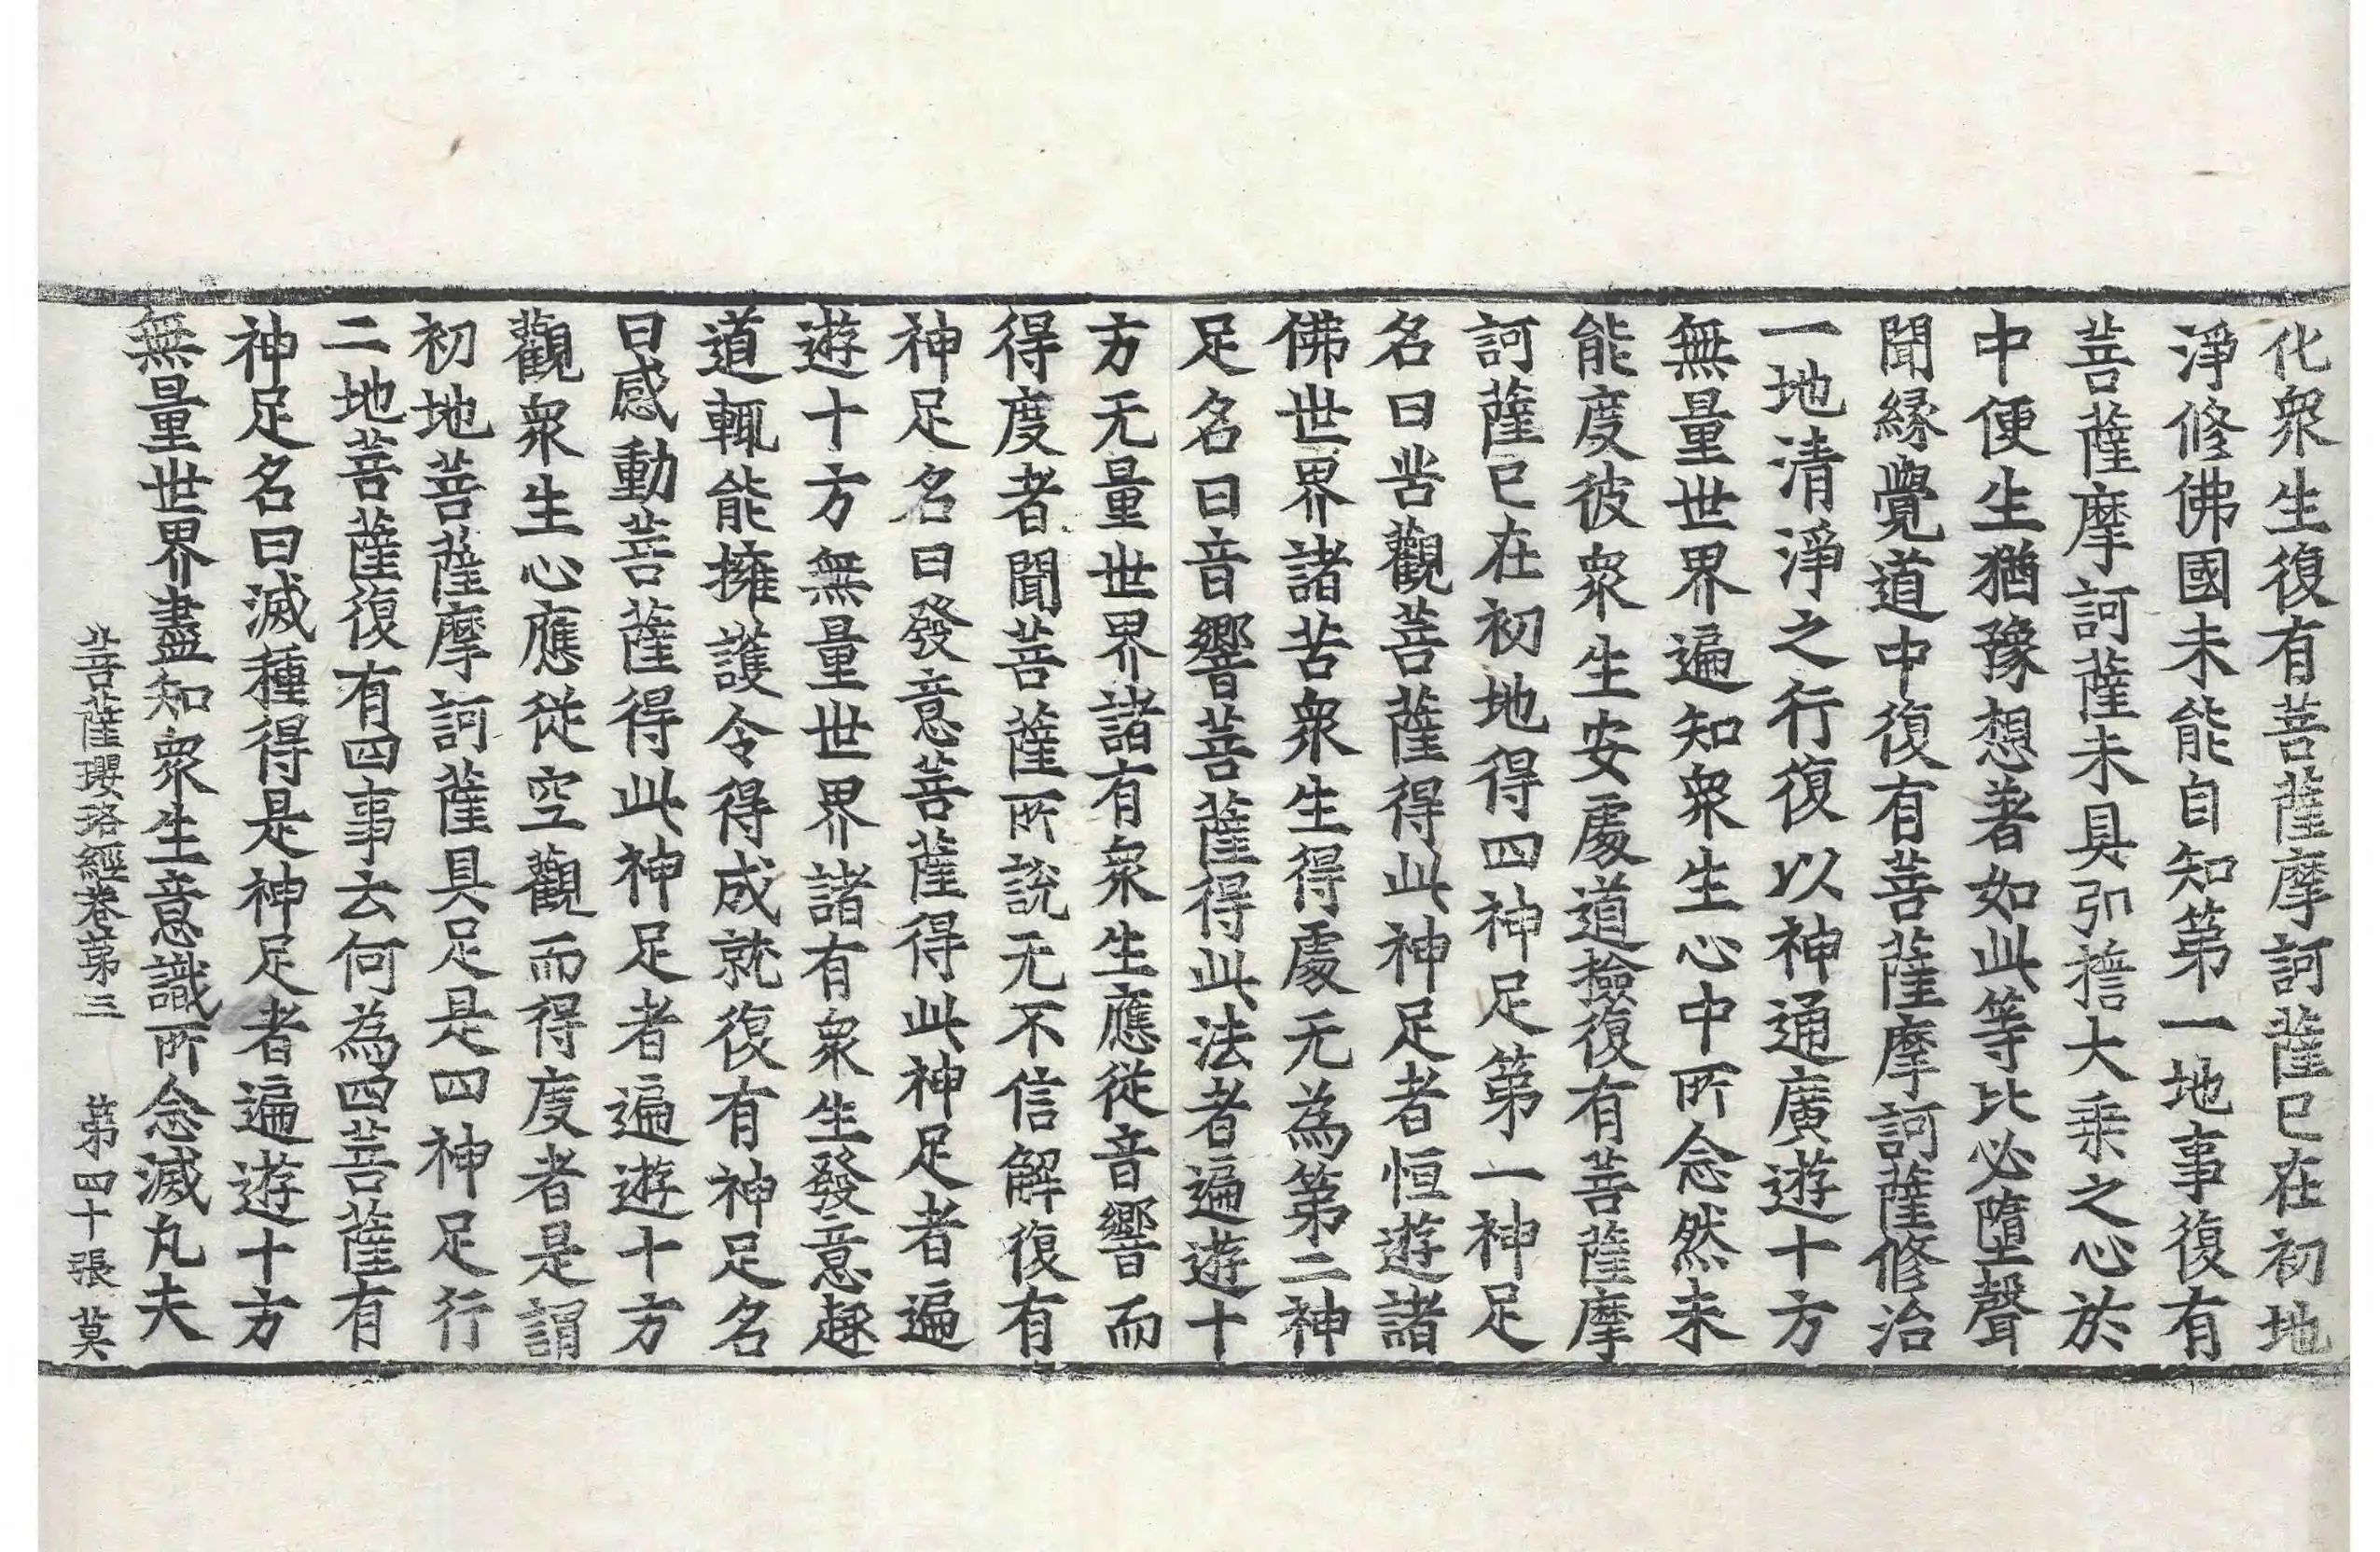 化衆生復有菩薩摩訶薩已在初地
淨修佛國未能自知第一地事復有
菩薩摩訶薩未具弘擔大乗之心於
中便生猶豫想著如此等比必墮聲
聞縁覺道中復有菩薩摩訶薩修治
一地清淨之行復以神通廣遊十方
無量世界遍知衆生心中所念然未
能度彼衆生安處道撿復有菩薩摩
訶薩已在初地得四神足第一神足
名曰岩觀菩薩得此神足者恒遊諸
佛世界諸苦衆生得處无為第二神
足名曰音響菩薩得此法者遍遊十
方无量世界諸有衆生應從音響而
得度者聞菩薩所說无不信解復有
神足名曰發意菩薩得此神足者遍
遊十方無量世界諸有衆生發意趣
道輒能擁護令得成就復有神足名
曰感動菩薩得此神足者遍遊十方
觀衆生心應從空觀而得度者是謂
初地菩薩摩訶薩具足是四神足行
二地菩薩復有四事云何為四菩薩有
神足名曰滅種得是神足者遍遊十方
無量世界盡知衆生意識所念滅凡夫
菩薩瓔珞經卷第三 第四十張 莫